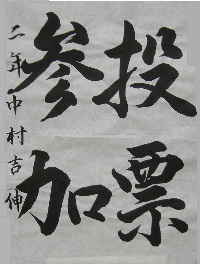 投票
参加
二年中村吉伸